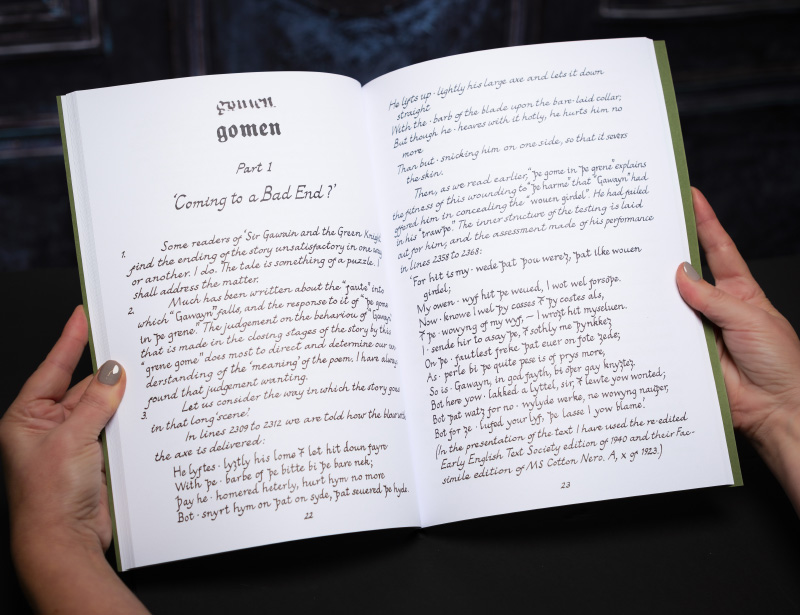 gomen
gomen
Part 1
'Coming to a Bad End?'
1. Some readers of 'Sir Gawain and the Green Knight'
find the ending of the story unsatisfactory in one way
or another. I do. The tale is something of a puzzle. I
shall address the matter.
2. Much has been written about the "faute" into
which "Gawayn" falls, and the response to it of "þe gome
in þe grene". The judgement on the behaviour of "Gawayn"
that is made in the closing stages of the story by this
"grene gome" does most to direct and determine our un-
derstanding of the 'meaning' of the poem. I have always
found that judgement wanting.
3. Let us consider the way in which the story goes
in that long 'scene'.
In lines 2309 to 2312 we are told how the blow with
the axe is delivered:
He lyftes · lyȝtly his lome ⁊ let hit doun fayre
With þe · barbe of þe bitte bi þe bare nek;
Þaȝ he · homered heterly, hurt hym no more
Bot · snyrt hym on þat on syde, þat seuered þe hyde.
22
He lyfts up · lightly his large axe and lets it down
straight
With the · barb of the blade upon the bare-laid collar;
But though he · heaves with it hotly, he hurts him no
more
Than but · snicking him on one side, so that it severs
the skin.
Then, as we read earlier, "þe gome in þe grene" explains
the fitness of this wounding to "þe harme" that "Gawayn" had
offered him in concealing the "wouen girdel". He had failed
in his "trawþe". The inner structure of the testing is laid
out for him, and the assessment made of his performance
in lines 2358 to 2368:
'For hit is my · wede þat þou wereȝ, þat ilke wouen
girdel;
My owen · wyf hit þe weued, I wot wel forsoþe.
Now · knowe I wel þy cosses ⁊ þy costes als,
⁊ þe · wowyng of my wyf, – I wroȝt hit myseluen.
I · sende hir to asay þe, ⁊ sothly me þynkkeȝ
On þe · fautlest freke þat euer on fote ȝede;
As · perle bi þe quite pese is of prys more,
So is · Gawayn, in god fayth, bi oþer gay knyȝteȝ.
Bot here yow · lakked a lyttel, sir, ⁊ lewte yow wonted;
Bot þat watȝ for no · wylyde werke, ne wowyng nauþer,
Bot for ȝe · lufed your lyf; þe lasse I yow blame.'
(In the presentation of the text I have used the re-edited
Early English Text Society edition of 1940 and their Fac-
simile edition of MS Cotton Nero. A, x of 1923.)
23